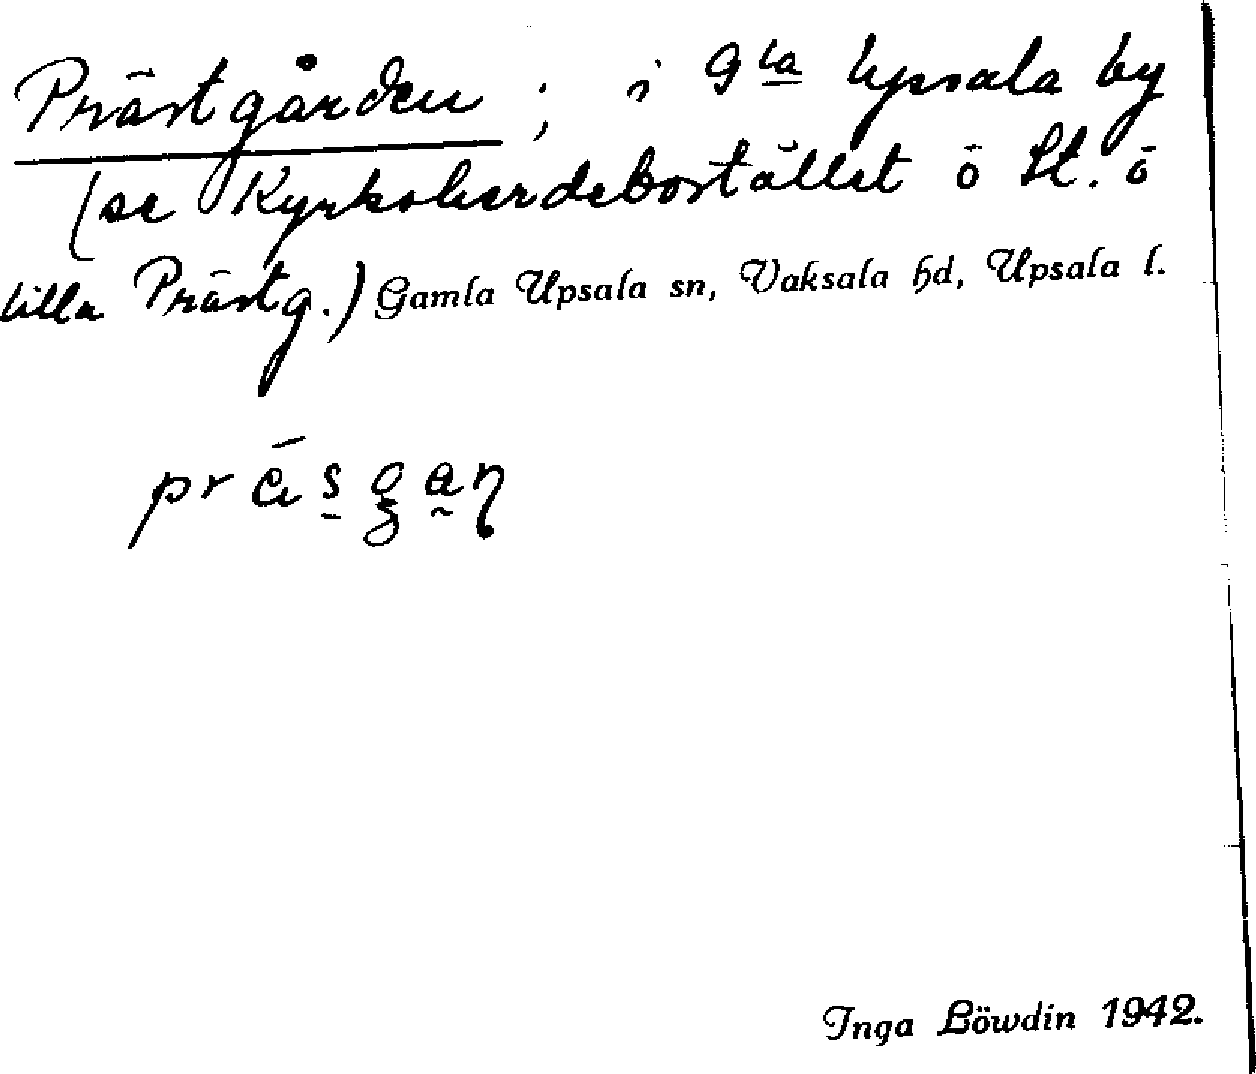 Prästgården ; i Gla Upsala by
(se Kyrkoherdebostället o St. o
Lilla Prästg.) Gamla Upsala sn, Vaksala hd, Upsala l.
Inga Löwdin 1942.